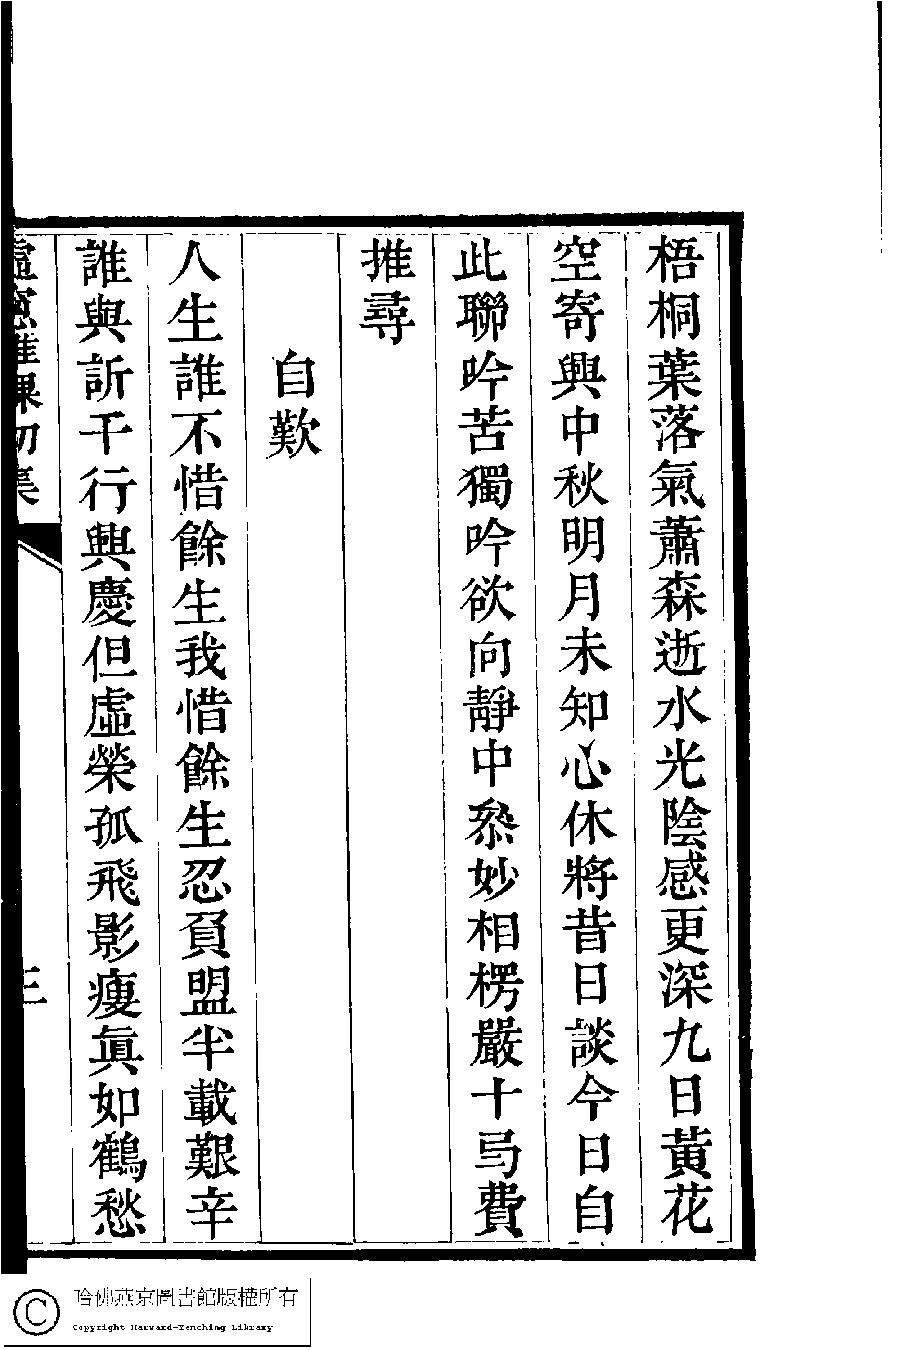 梧桐葉落氣蕭森逝水光陰感更深九日黃花
空寄興中秋明月未知心休將昔日談今日自
此聯吟苦獨吟欲向靜中叅妙相楞嚴十弓費
推尋
自歎
人生誰不惜餘生我惜餘生忍負盟半載艱辛
誰與訴千行興慶但虛榮孤飛影瘦眞如鶴愁
虛窻雜課初集
三
哈佛燕京圖書館版權所有
Copyright Harvard-Yenching Library